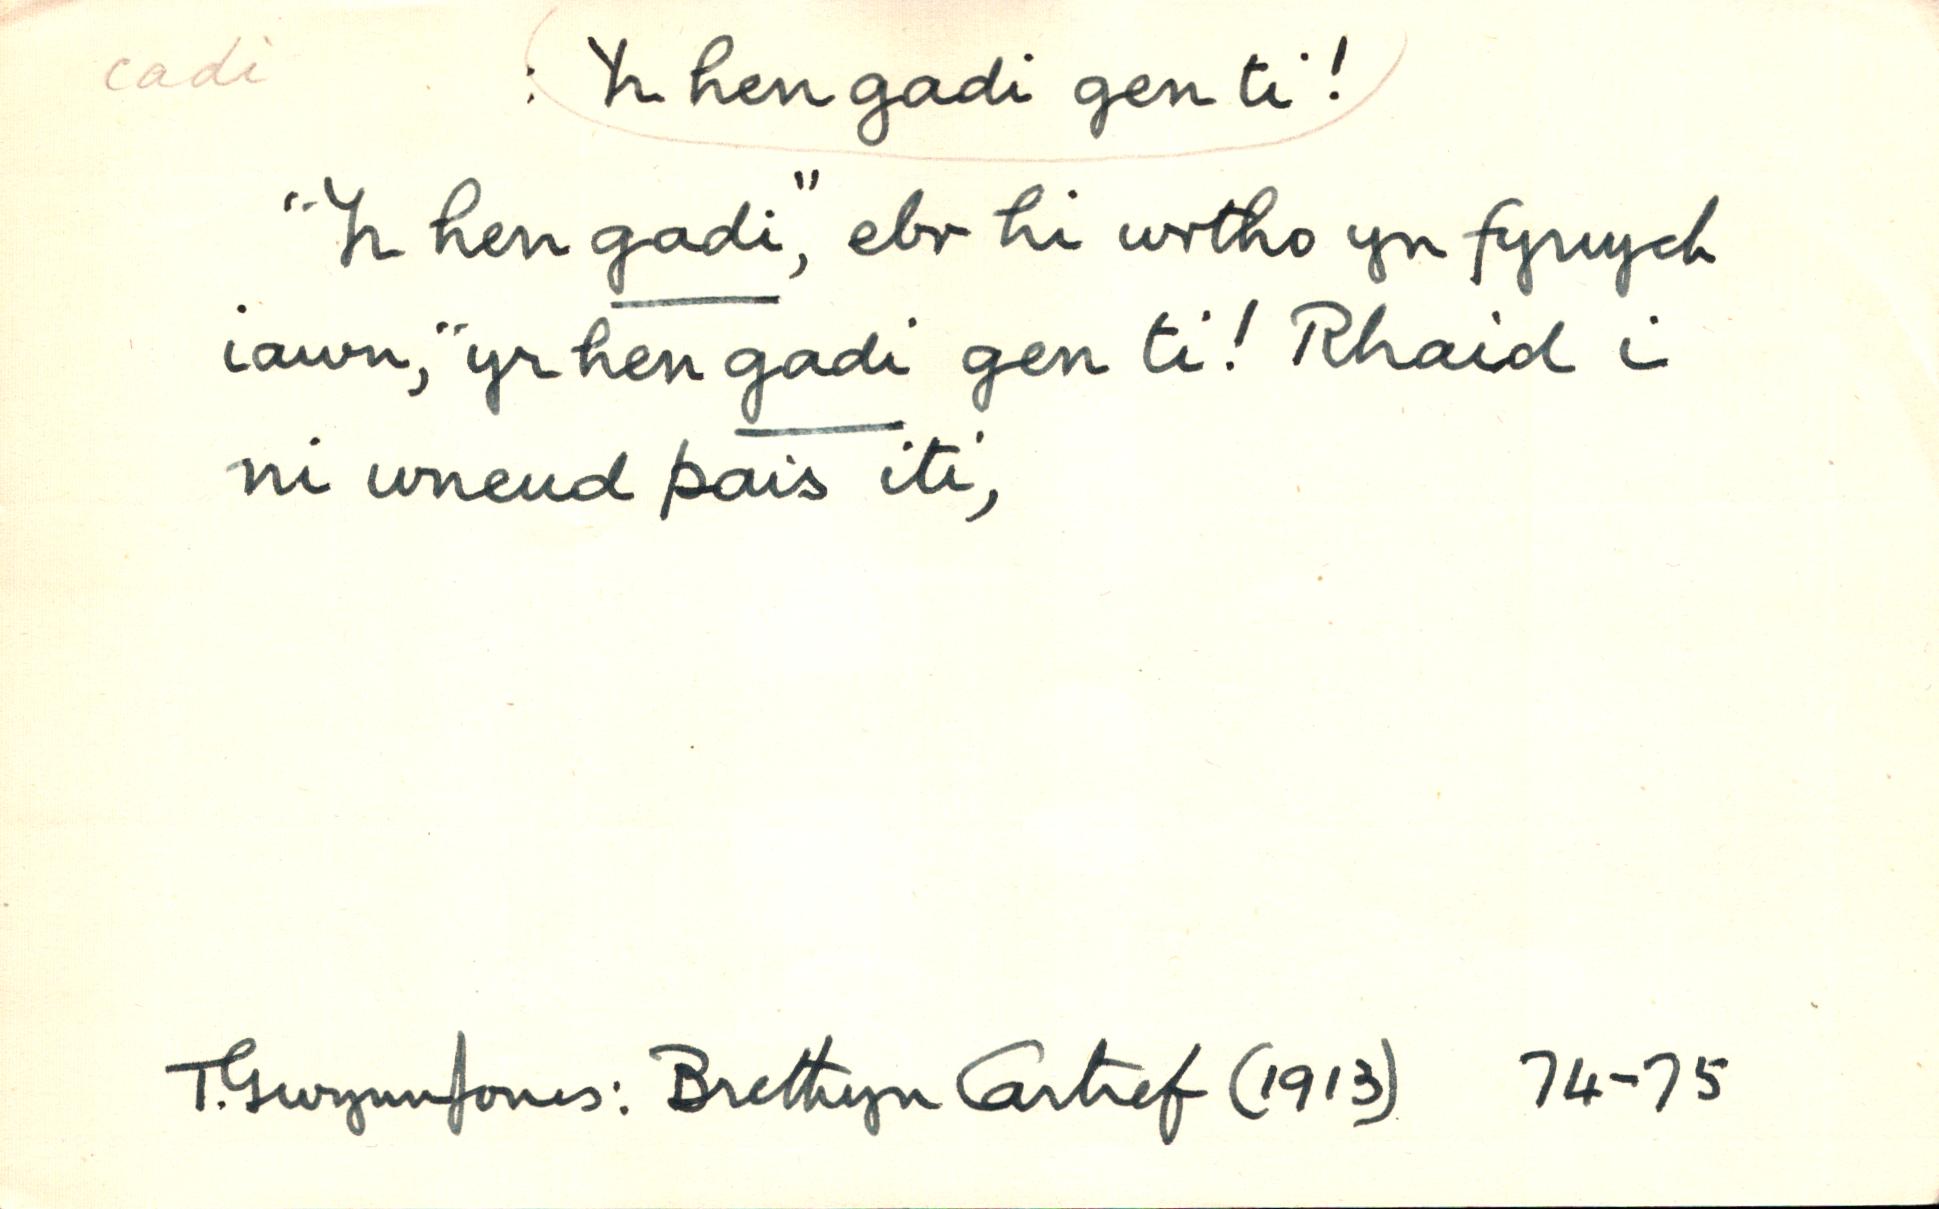 cadi : Yr hen gadi gen ti!
"Yr hen gadi," ebr hi wrtho yn fynych
iawn, "yr hen gadi gen ti! Rhaid i
ni wneud pais iti,
T. Gwynn Jones: Brethyn Cartref (1913) 74-75